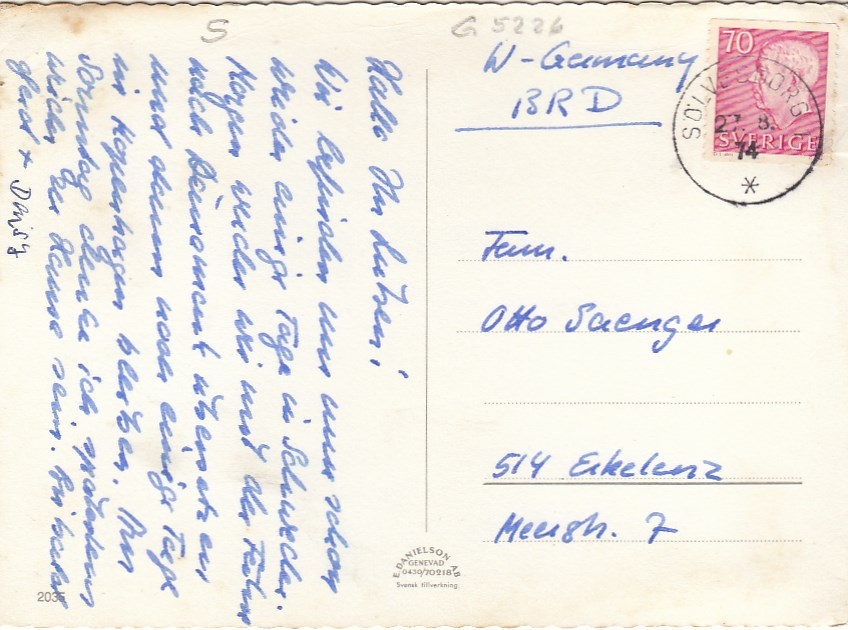 S
G 5226
W-Germany
BRD
70
SVERIGE
SÖLVESBORG
27. 8.
74
Hallo Ihr Lieben!
Wir befinden uns nun schon
wieder einige Tage in Schweden.
Morgen werden wir mit der Fähre
nach Dänemark übersetzen
und dann noch einige Tage
in Kopenhagen bleiben. Am
Sonntag denke ich, spätestens
wieder zu Hause sein.
Gerd + Daisy
Fam.
Otto Saenger
514 Erkelenz
Meerstr. 7
E. DANIELSON AB
GENEVAD
0430/70218
Svensk tillverkning
2035